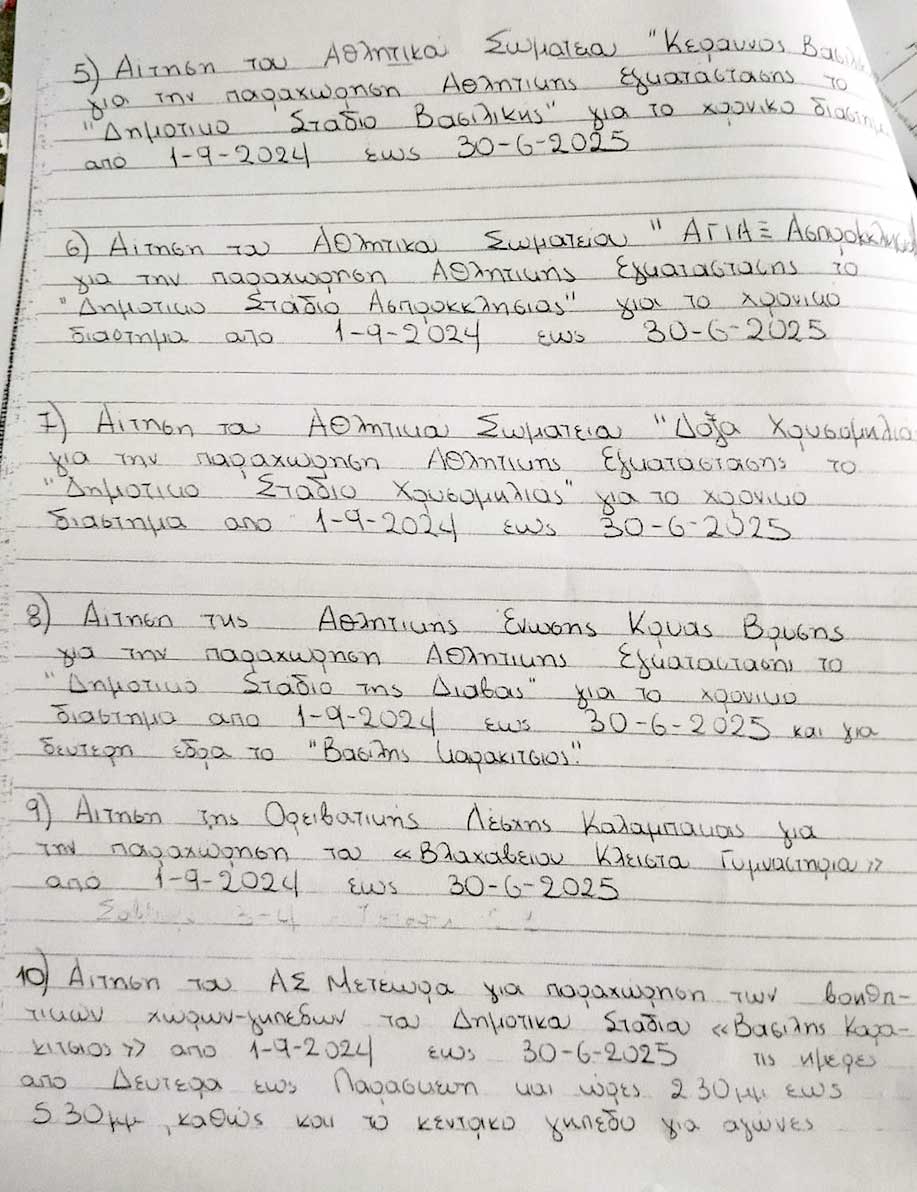 5) Αιτηση του Αθλητικου Σωματειου "Κεραυνος Βασιλι
για την παραχωρηση Αθλητικης Εγκαταστασης το
"Δημοτικο Σταδιο Βασιλικης" για το χρονικο διαστημα
από 1-9-2024 εως 30-6-2025
6) Αιτηση του Αθλητικου Σωματειου "ΑΓΙΑΞ Ασπροκκλησι
για την παραχωρηση Αθλητικης Εγκαταστασης το
"Δημοτικο Σταδιο Ασπροκκλησιας" για το χρονικο
διαστημα απο 1-9-2024 εως 30-6-2025
7) Αιτηση του Αθλητικου Σωματειου "Δοξα Χρυσομηλια
για την παραχωρηση Αθλητικης Εγκαταστασης το
"Δημοτικο Σταδιο Χρυσομηλιας" για το χρονικο
διαστημα απο 1-9-2024 εως 30-6-2025
8) Αιτηση της Αθλητικης Ενωσης Κρυας Βρυσης
για την παραχωρηση Αθλητικης Εγκαταστασης το
"Δημοτικο Σταδιο της Διαβας" για το χρονικο
διαστημα απο 1-9-2024 εως 30-6-2025 και για
δευτερη εδρα το "Βασιλης Καρακιτσιος".
9) Αιτηση της Ορειβατικης Λεσχης Καλαμπακας για
την παραχωρηση του «Βλαχαβειου Κλειστου Γυμναστηριου»
από 1-9-2024 εως 30-6-2025
3-4
10) Αιτηση του ΑΣ Μετεωρα για παραχωρηση των βοηθη-
τικων χωρων-γηπεδων του Δημοτικου Σταδιου «Βασιλης Καρα-
κιτσιος» απο 1-9-2024 εως 30-6-2025 τις ημερες
απο Δευτερα εως Παρασκευη και ώρες 2 30μμ εως
5 30μμ, καθώς και το κεντρικο γηπεδο για αγώνες